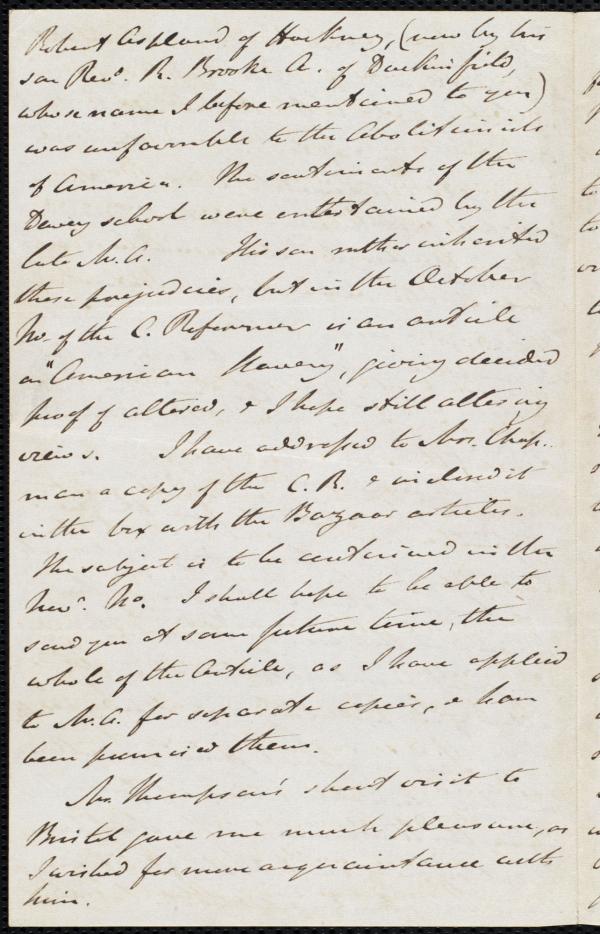 Robert Aspland of Hackney, (now by his
son Revd. R. Brooke A. of Duckinfield,
whose name I before mentioned to you)
was unfavorable to the Abolitionists
of America. The sentiments of the
Dewey school were entertained by the
late Mr. A. His son rather inherited
these prejudices, but in the October
No. of the C. Reformer is an article
on "American Slavery", giving decided
proof of altered, & I hope still altering
views. I have addressed to Mrs. Chap-
man a copy of the C. R. & inclosed it
in the box with the Bazaar articles.
The subject is to be continued in the
Novr. No. I shall hope to be able to
send you at some future time, the
whole of the Article, as I have applied
to Mr. A. for separate copies, & have
been promised them.
Mr. Thompson's short visit to
Bristol gave me much pleasure, as
I wished for more acquaintance with
him.